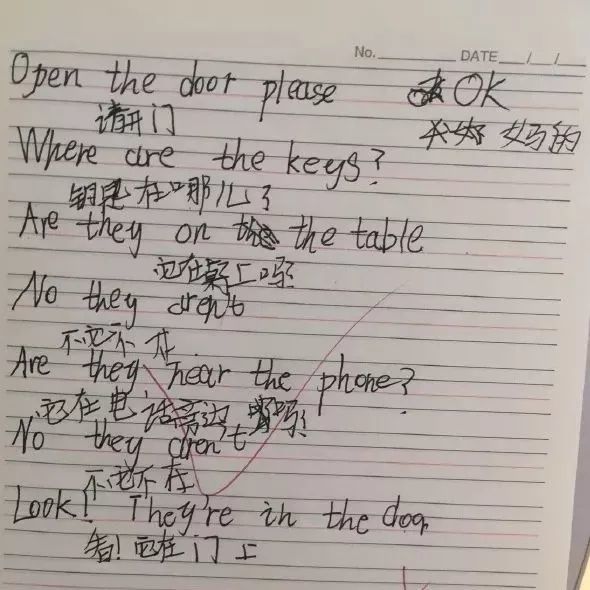 No. DATE / /
Open the door please OK
请开门 妈的
Where are the keys?
钥匙在哪儿?
Are they on the the table
它在桌上吗
No they aren't
不它不在
Are they near the phone?
它在电话旁边吗
No they aren't
不它不在
Look! They're in the door
看!它在门上